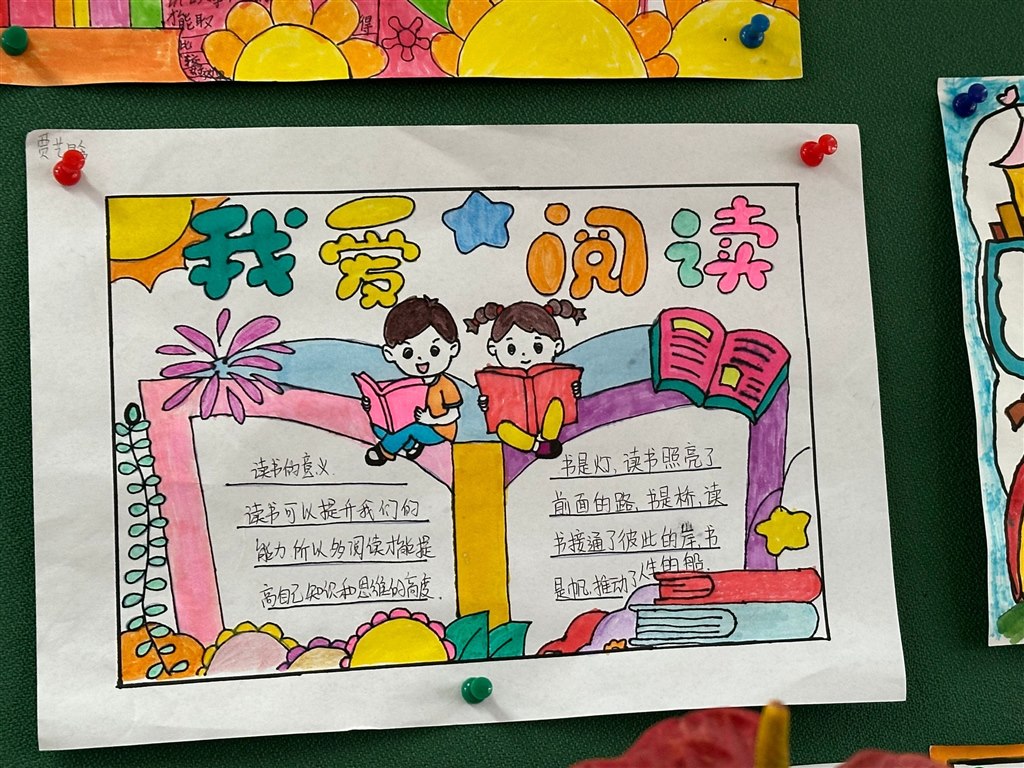 能取
得
比
贾艺晗
我爱阅读
读书的意义
读书可以提升我们的
能力所以多阅读才能提
高自己知识和思维的高度.
书是灯,读书照亮了
前面的路,书是桥,读
书接通了彼此的岸,书
是帆,推动了人生的船.